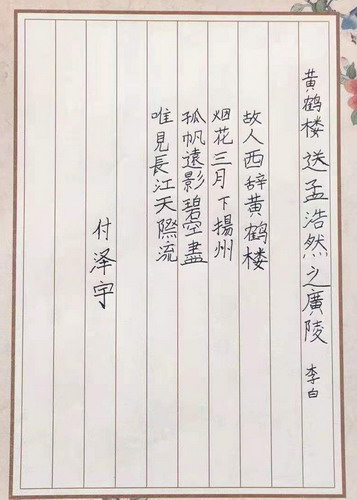 黄鹤楼送孟浩然之廣陵 李白
故人西辞黄鹤楼
烟花三月下揚州
孤帆遠影碧空盡
唯見長江天際流
付泽宇